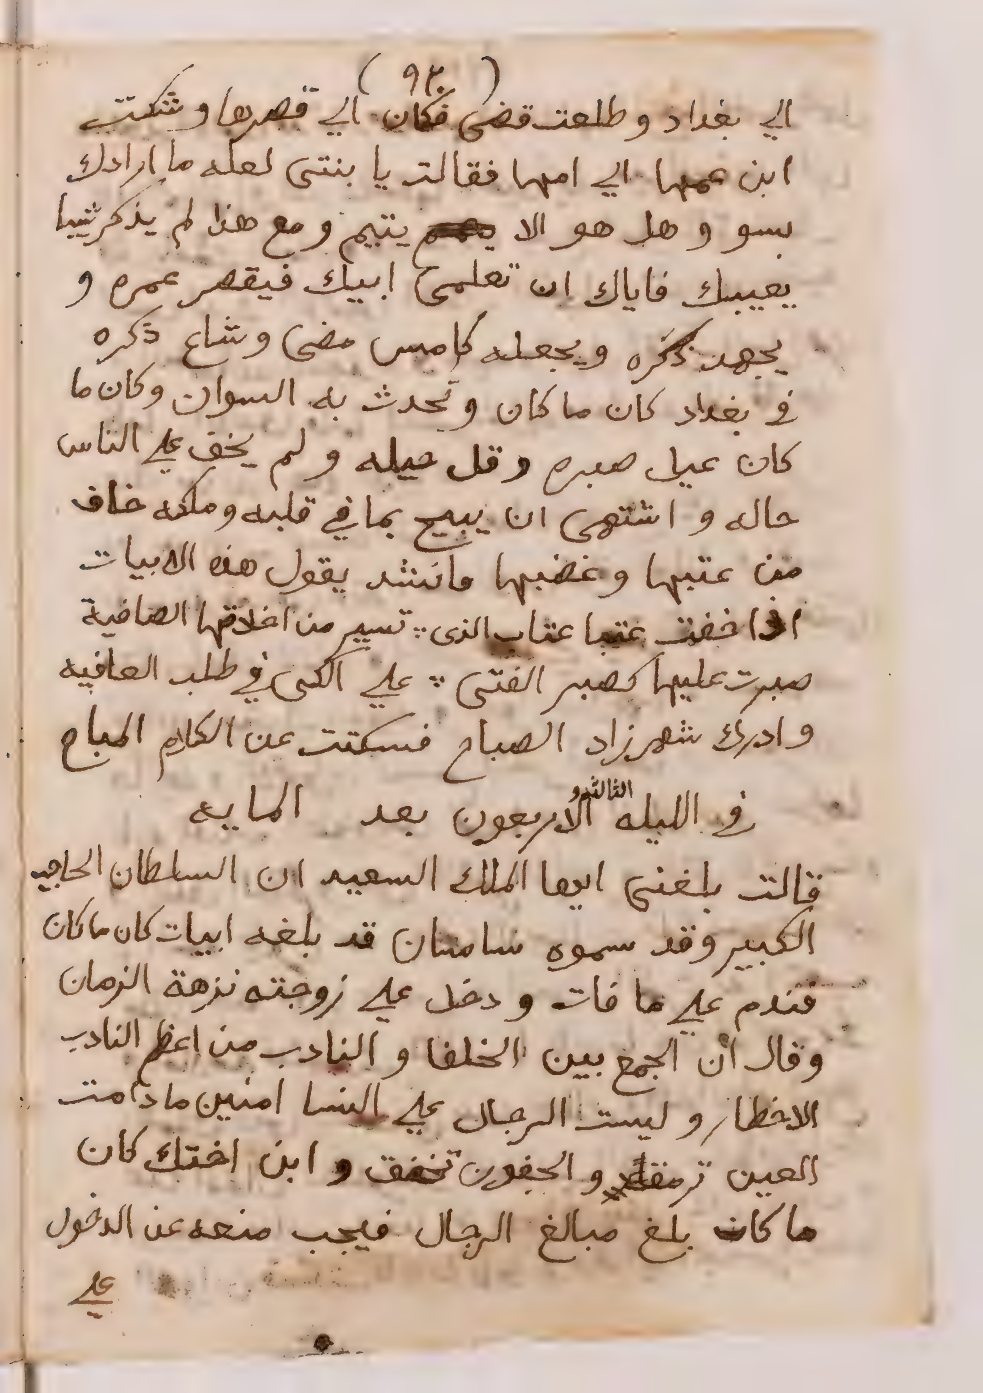 (٩٣)
الي بغداد و طلعت قضى فكان الي قصرها و شكت
ابن عمها الي امها فقالت يا بنتى لعله ما ارادك
بسو و هل هو الا يتيم و مع هذا لم يذكر شيا
يعيبك فاياك ان تعلمي ابيك فيقصر عمره و
يجهد ذكره و يجعله كامس مضى و شاع ذكره
في بغداد كان ما كان و تحدث به السوان وكان ما
كان عيل صبره و قل حيله و لم يخف علي الناس
حاله و اشتهى ان يبيح بما في قلبه و ملكه خاف
من عتبها و غضبها فانشد يقول هذه الابيات
اذا خفت عتبا عتاب الذى ؞ تسير من اخلاقها الصافية
صبرت عليها كصبر الفتى ؞ علي الكى في طلب العافيه
و ادرك شهرزاد الصباح فسكتت عن الكلام المباح
في الليله الثالثه و الاربعون بعد المايه
قالت بلغنى ايها الملك السعيد ان السلطان الحاجب
الكبير وقد سموه ساسان قد بلغه ابيات كان ما كان
فندم علي ما فات و دخل علي زوجته نزهة الزمان
و قال ان الجمع بين الخلفا و النادب من اعظم النادب
الاخطار و ليست الرجال علي النسا امنين ما دامت
العين ترمق و الجفون تخفق و ابن اختك كان
ما كان بلغ مبالغ الرجال فيجب منعه عن الدخول
علي